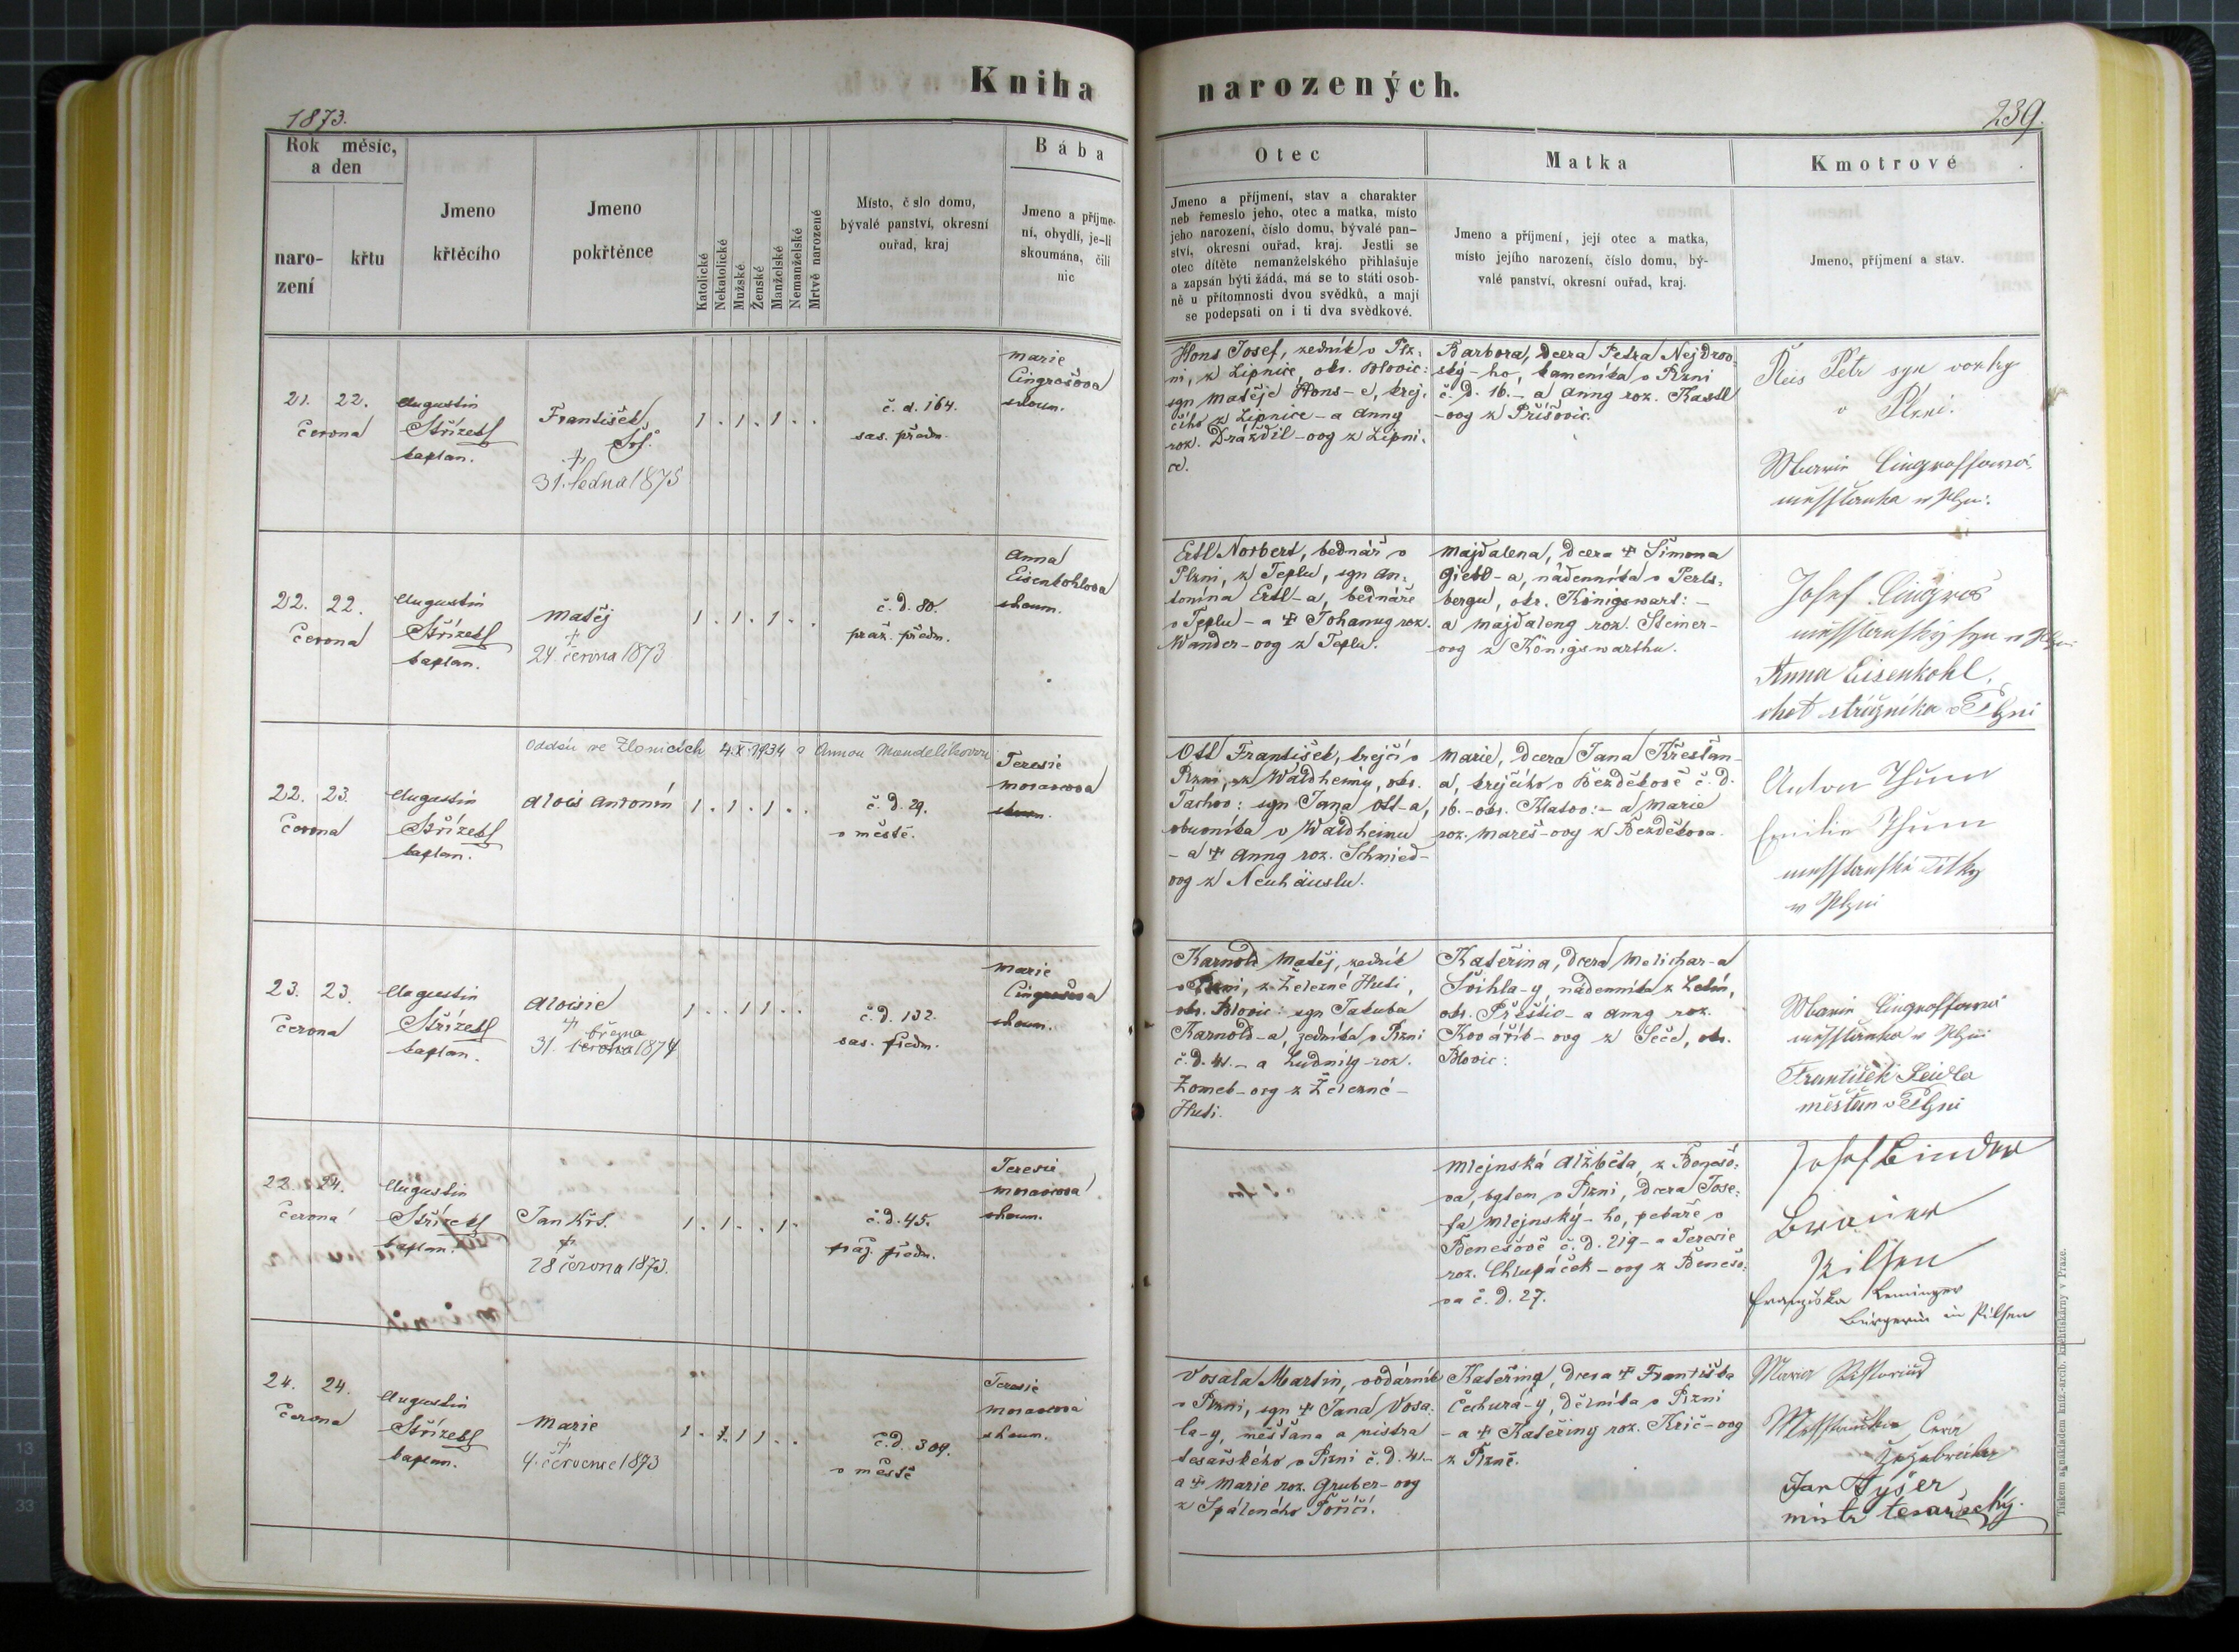 Kniha
narozených.
1873.
239.
Rok měsíc,
a den
naro-
zení
křtu
Jmeno
křtěcího
Jmeno
pokřtěnce
Katolické
Nekatolické
Mužské
Ženské
Manželské
Nemanželské
Mrtvě narozené
Místo, č slo domu,
bývalé panství, okresní
ouřad, kraj
Bába
Jmeno a příjme-
ní, obydlí, je-li
skoumána, čili
nic
Otec
Jmeno a příjmení, stav a charakter
neb řemeslo jeho, otec a matka, místo
jeho narození, číslo domu, bývalé pan-
ství, okresní ouřad, kraj. Jestli se
otec dítěte nemanželského přihlašuje
a zapsán býti žádá, má se to státi osob-
ně u přítomnosti dvou svědků, a mají
se podepsati on i ti dva svědkové.
Matka
Jmeno a příjmení, její otec a matka,
místo jejího narození, číslo domu, bý-
valé panství, okresní ouřad, kraj.
Kmotrové
Jmeno, příjmení a stav.
21. 22.
června
Augustin
Střízek
kaplan.
František
†
31. ledna 1875
1 . 1 . 1 . .
č. d. 164.
sas. předm.
Marie
Cingrošova
skoum.
Hons Josef, zedník v Plz:
ni, z Lipnice, okr. Blovic:
syn Matěje Hons-e, krej:
čího z Lipnice - a Anny
roz. Dráždil-ovy z Lipni:
ce.
Barbora, dcera Petra Nejdrov:
ský-ho, kameníka v Plzni
č. d. 16. - a Anny roz. Kastl
-ovy z Příšovic.
Petr syn vozky
v Plzni.
Marie Cingrossowá
měsstanka w Plzni:
22. 22.
června
Augustin
Střízek
kaplan.
Matěj
†
24. června 1873
1 . 1 . 1 . .
č. d. 80.
praž. předm.
Anna
Eisenkohlova
skoum.
Ertl Norbert, bednář v
Plzni, z Teplu, syn An:
tonína Ertl-a, bednáře
v Teplu - a † Johanny roz.
Wander-ovy z Teplu.
Majdalena, dcera † Šimona
Gietl-a, nádenníka v Perls-
bergu, okr. Königswart: -
a Majdaleny roz. Steiner-
ovy z Königswarthu.
Josef Cingros
měsstanský syn w Plzni
Anna Eisenkohl,
choť strážníka v Plzni
Oddán ve Zlonicích 4.X.1934 s Annou Mandelíkovou
22. 23.
června
Augustin
Střízek
kaplan.
Alois Antonín
1 . 1 . 1 . .
č. d. 29.
v městě.
Teresie
Moravcova
skoum.
Ott František, krejčí v
Plzni, z Waldheimu, okr.
Tachov: syn Jana Ott-a,
obuvníka v Waldheimu
- a † Anny roz. Schmied-
ovy z Neuhäuslu.
Marie, dcera Jana Křesťan-
a, krejčího v Bezděkově č. d.
16. - okr. Klatov: - a Marie
roz. Mareš-ovy z Bezděkova.
Anton Thum
Emilie Thum
měsstanské dítky
w Plzni
23. 23.
června
Augustin
Střízek
kaplan.
Aloisie
†
března
31. června 1874
1 . . 1 1 . .
č. d. 132.
sas. předm.
Marie
Cingrošova
skoum.
Karnold Matěj, zedník
v Plzni, z Železné Huti,
okr. Blovic: syn Jakuba
Karnold-a, zedníka v Plzni
č. d. 41. - a Ludmily roz.
Žomek-ovy z Železné-
Huti.
Kateřina, dcera Melichar-a
Švihla-y, nádenníka z Letin,
okr. Přeštic - a Anny roz.
Kovářík-ovy z Seče, okr.
Blovic:
Marie Cingrossowá
měsstanka w Plzni
František
měšťan v Plzni
22. 24.
června
Augustin
Střízek
kaplan.
Jan Křt.
†
28 června 1873.
1 . 1 . . 1 .
č. d. 45.
praž. předm.
Teresie
Moravcova
skoum.
Mlejnská Alžběta, z Benešo:
va, bytem v Plzni, dcera Jose:
fa Mlejnský-ho, pekaře v
Benešově č. d. 219 - a Teresie
roz. Chlupáček-ovy z Benešo:
va č. d. 27.
Josef Binder
Brauer
Pilsen
Franziska Leminger
Bürgerin in Pilsen
24. 24.
června
Augustin
Střízek
kaplan.
Marie
†
4. července 1873
1 . 1 1 1 . .
č. d. 304.
v městě
Teresie
Moravcova
skoum.
Vosala Martin, vodárník
v Plzni, syn † Jana Vosa:
la-y, měšťana a mistra
tesařského v Plzni č. d. 41. -
a † Marie roz. Gruber-ovy
z Spáleného Poříčí.
Kateřina, dcera † Františka
Čechura-y, dělníka v Plzni
- a † Kateřiny roz. Krič-ovy
z Plzně.
Maria Pistorius
Jan Tyšer
mistr tesařský.
Tiskem a nákladem kníž.-arcib. knihtiskárny v Praze.
13
33